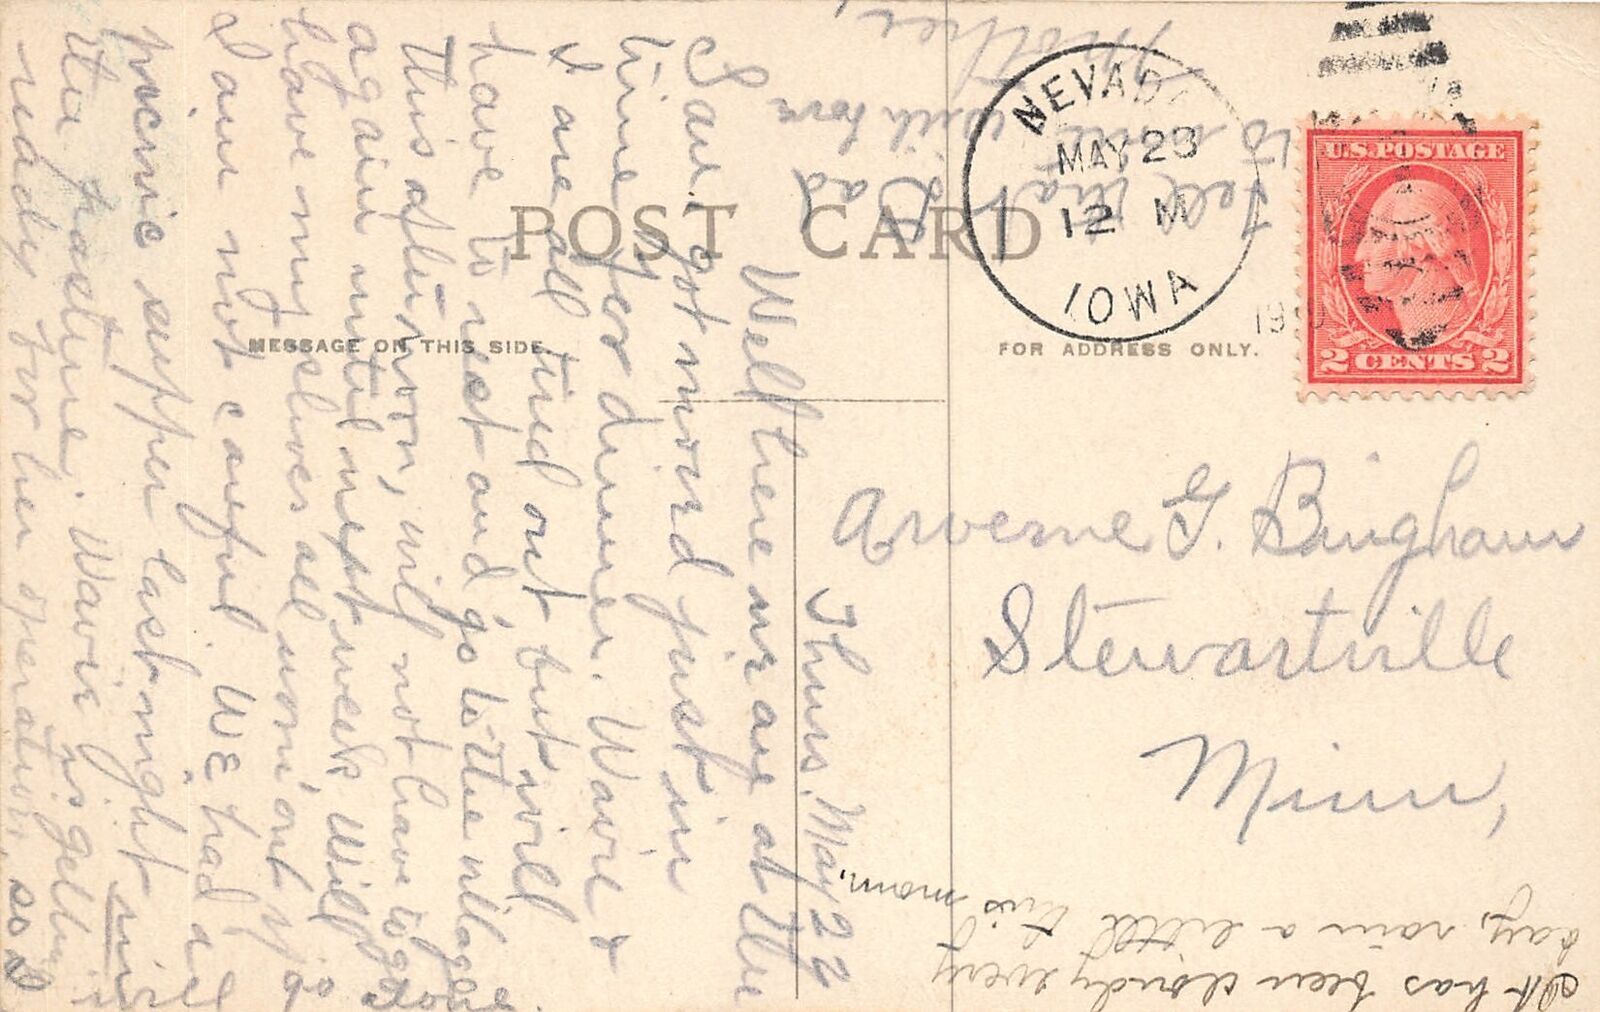 POST CARD
MESSAGE ON THIS SIDE
FOR ADDRESS ONLY.
NEVADA
MAY 23
12 M
IOWA
19
U.S. POSTAGE
2 CENTS 2
Arverne G. Bingham
Stewartville
Minn,
Thurs. May 22
Well here we are at the
San. got moved just in
time for dinner. Wavie &
I are all tired out but will
have to rest and go to the village
this afternoon, will not have to go
again until next week. Will
have my shoes all worn out if
I am not careful. WE had a
picnic supper last night in
the pasture, Wavie is getting
ready for her operation, so I
will
Tell
to
that
with
Dad
Mother,
It has been cloudy every
day, rain a little this
morn.